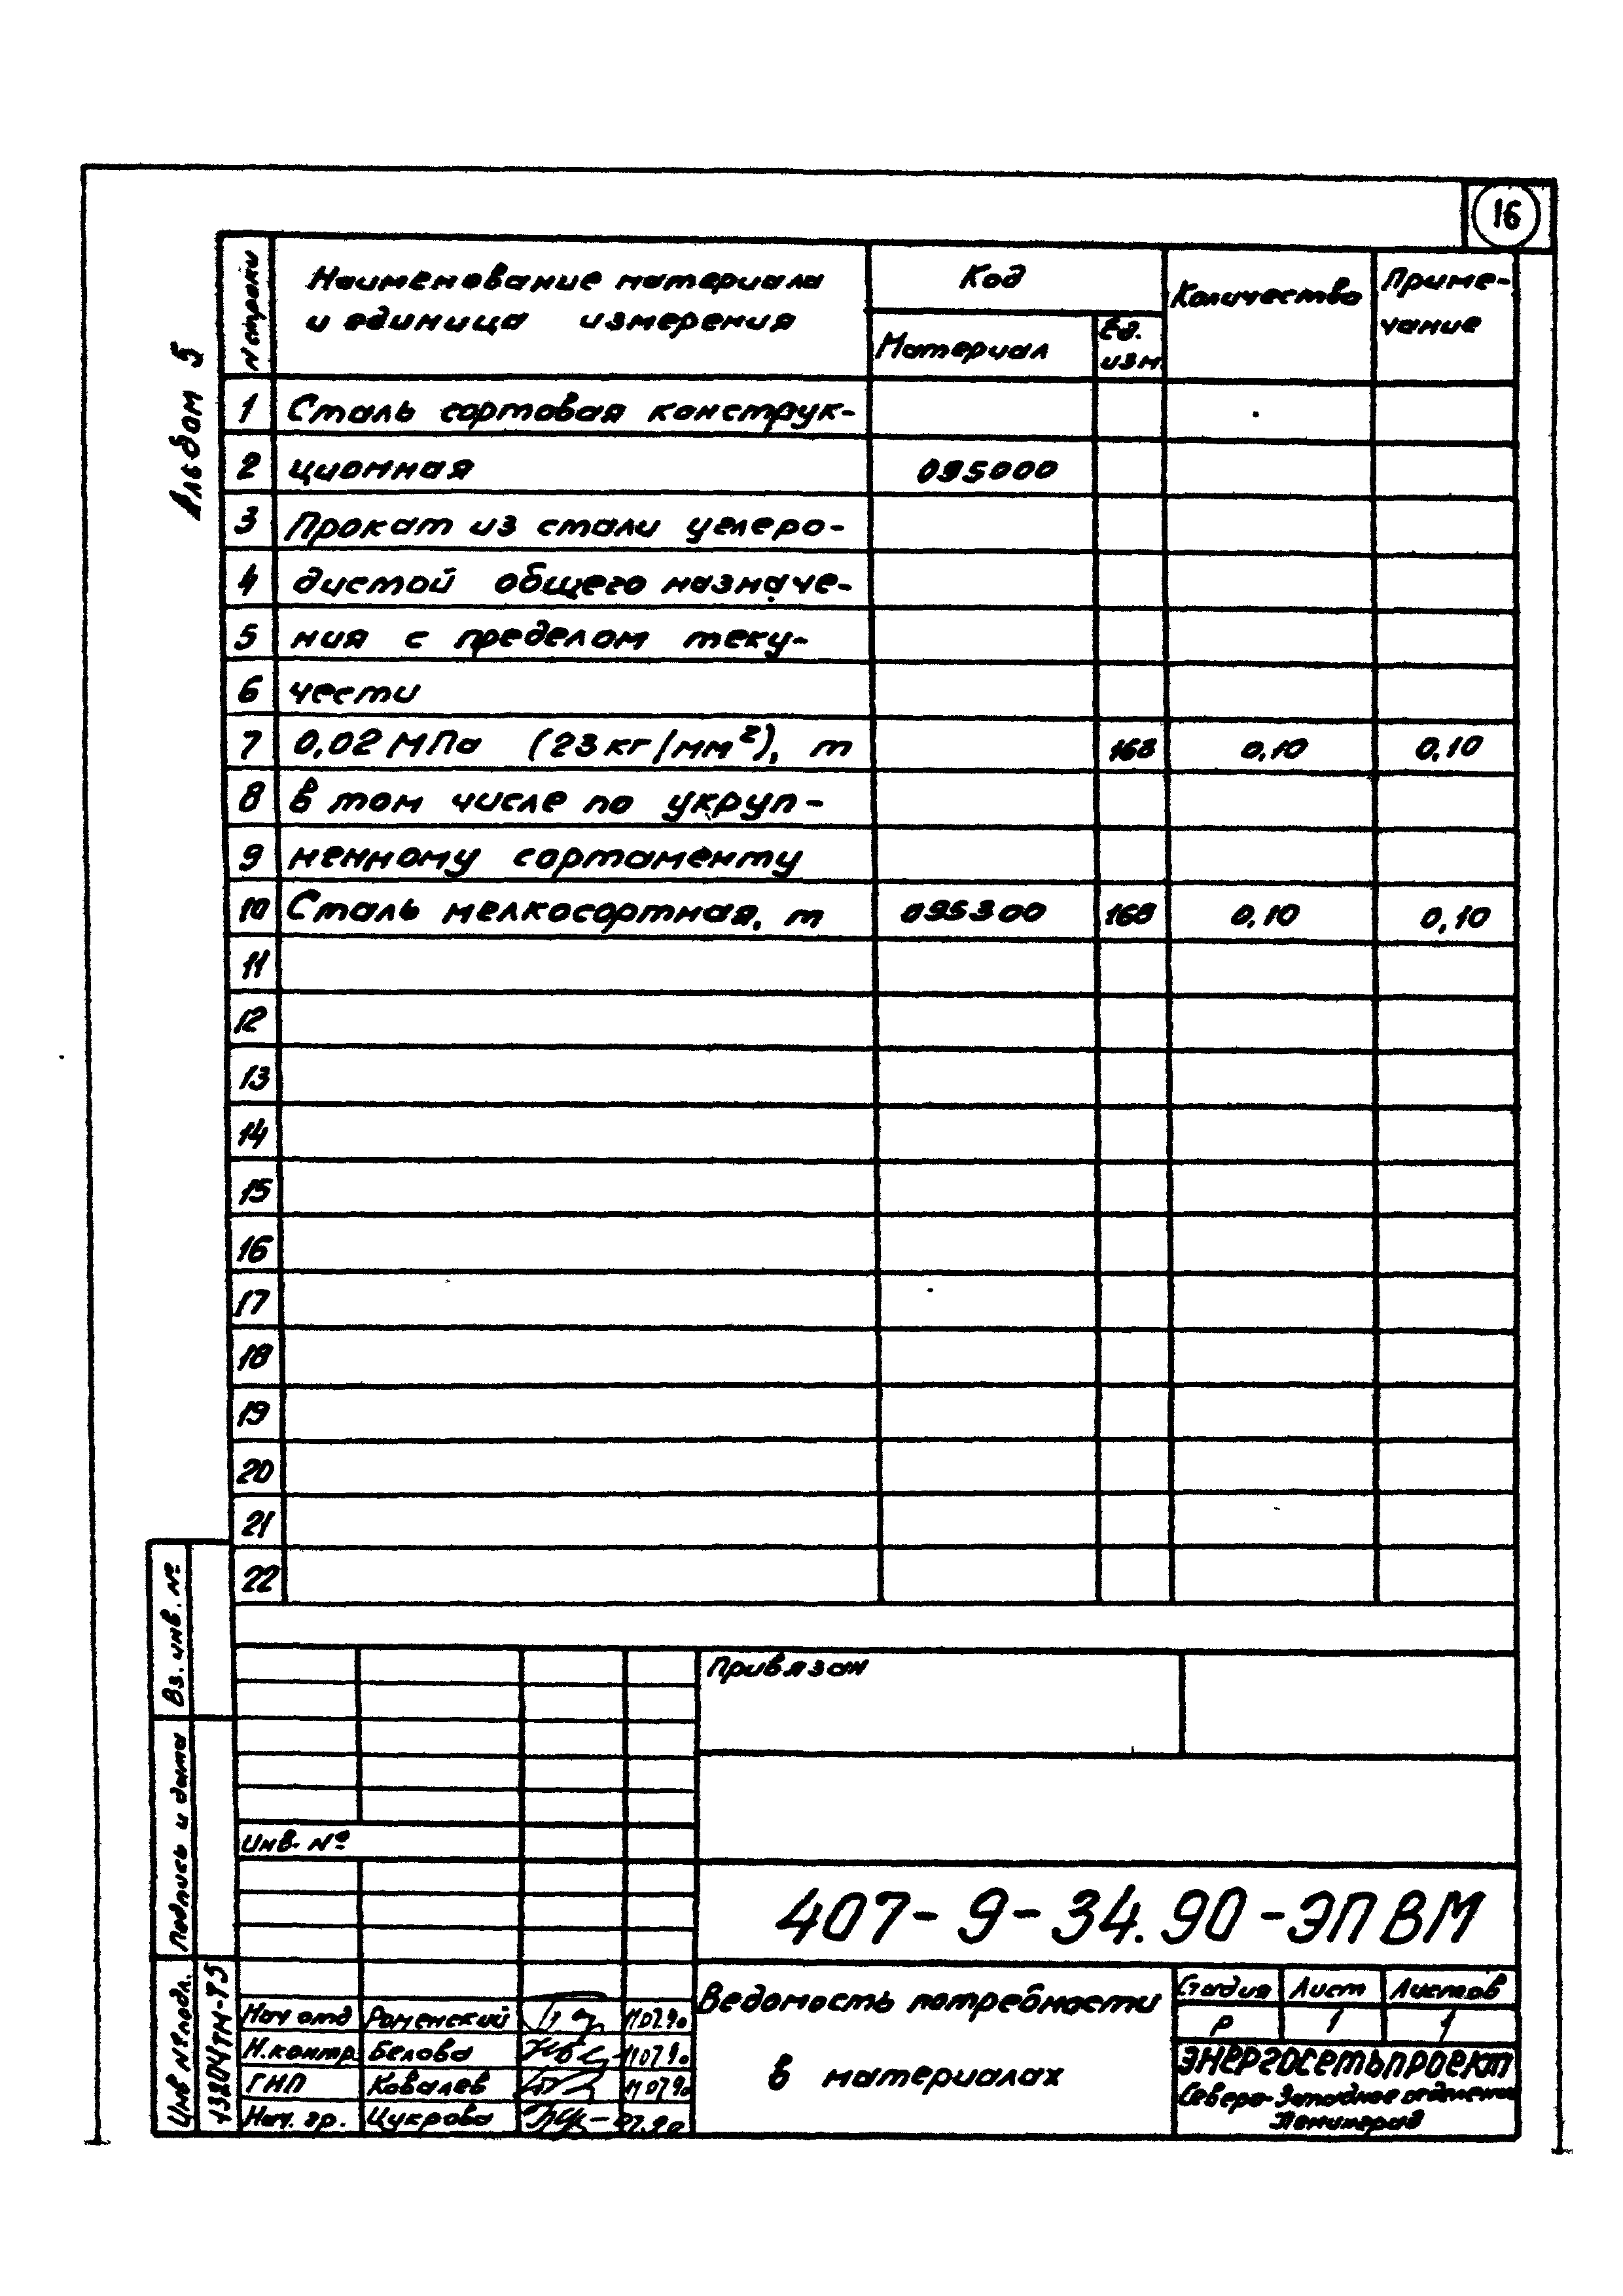 16
Альбом 5
N строки
Наименование материала
и единица измерения
Код
Материал
Ед.
изм.
Количество
Приме-
чание
1 Сталь сортовая конструк-
2 ционная 095000
3 Прокат из стали углеро-
4 дистой общего назначе-
5 ния с пределом теку-
6 чести
7 0,02 МПа (23 кг/мм²), т 168 0,10 0,10
8 в том числе по укруп-
9 ненному сортаменту
10 Сталь мелкосортная, т 095300 168 0,10 0,10
11
12
13
14
15
16
17
18
19
20
21
22
Вз. инв. №
Подпись и дата
Инв № подл.
13204тм-т5
Привязан
Инв. №
407-9-34.90-ЭП ВМ
Нач отд Роменский 11.07.90
Н.контр. Белова 11.07.90
ГИП Ковалев 11.07.90
Нач. гр. Цукрова 07.90
Ведомость потребности
в материалах
Стадия Лист Листов
Р 1 1
ЭНЕРГОСЕТЬПРОЕКТ
Северо-Западное отделение
Ленинград